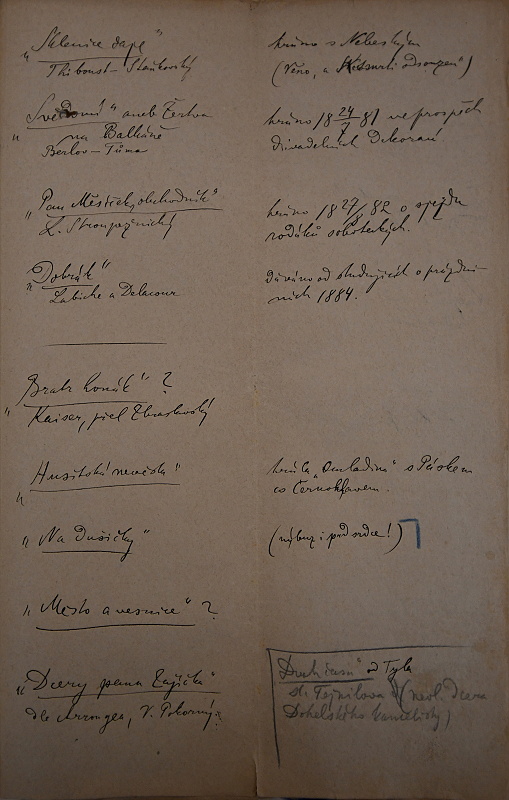 „Sklenice čaje“
Thiboust – Stankovský
hráno s Nebeským
(Věno, a odsouzen“)
„Svědomí“ aneb Čertova
na Balkáně
Berlov – Tůma
hráno 18 24/7 81 ve prospěch
divadelních dekorací
„Pan Měsíček, obchodník“
L. Stroupežnický
hráno 18 27/8 82 o sjezdu
rodáků soboteckých.
„Dobrák“
Labiche a Delacour
dáváno od studujících o prázdni-
nách 1884.
„Bratr honák“ ?
Kaiser, přel. Zbraslavský
„Husitská nevěsta“
hrála „Omladina“ s Páskem
co Černohlavem.
„Na Dušičky“
(výbuz i pod srdce!)
„Město a vesnice“ ?
„Dcery pana Zajíčka“
dle Arrongea, V. Pokorný.
„Druh času“ od Tyla
sl. Tejnilova (neol. dcera
Dohelského kancelisty)